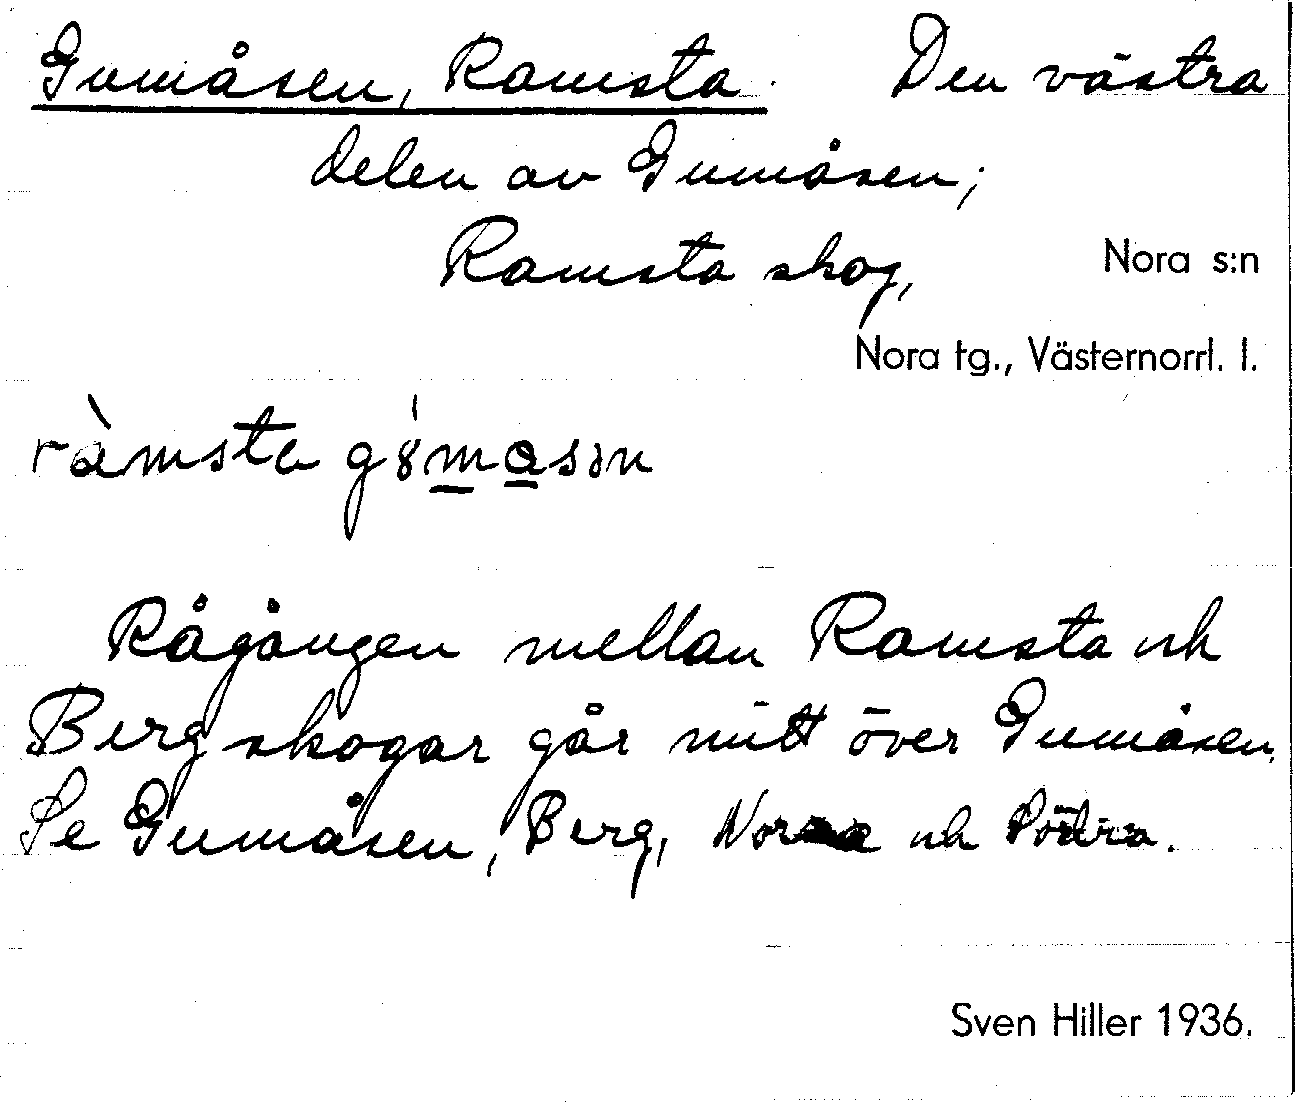 Gumåsen, Ramsta. Den västra
delen av Gumåsen;
Ramsta skog,
Nora s:n
Nora tg., Västernorrl. l.
ràmsta
Rågången mellan Ramsta och
Berg skogar går mitt över Gumåsen.
Se Gumåsen, Berg, Norra och Södra.
Sven Hiller 1936.